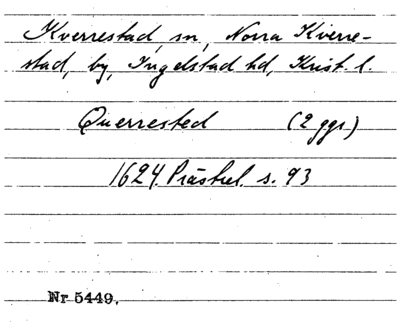 Kverrestad, sn, Norra Kverre-
stad, by, Ingelstad hd, Krist. l.
Querrested (2 ggr)
1624 Prästrel. s. 93
Nr 5449.